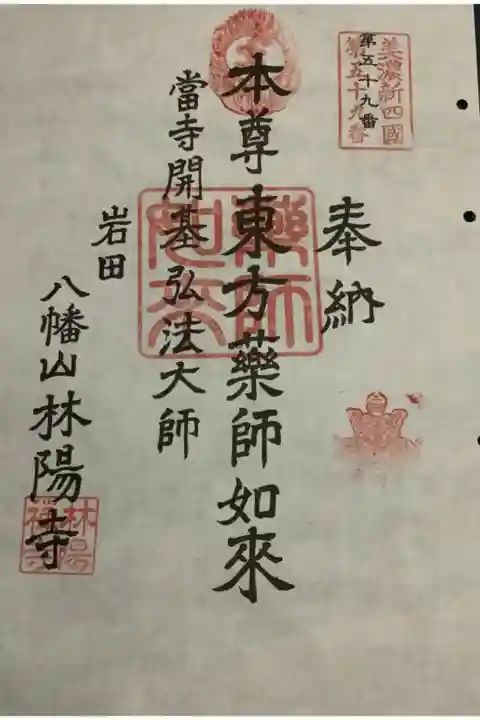 美濃新四國
第五十九番
第五十九番
奉納
本尊東方藥師如來
當寺開基弘法大師
岩田
八幡山林陽寺
林陽
禅寺